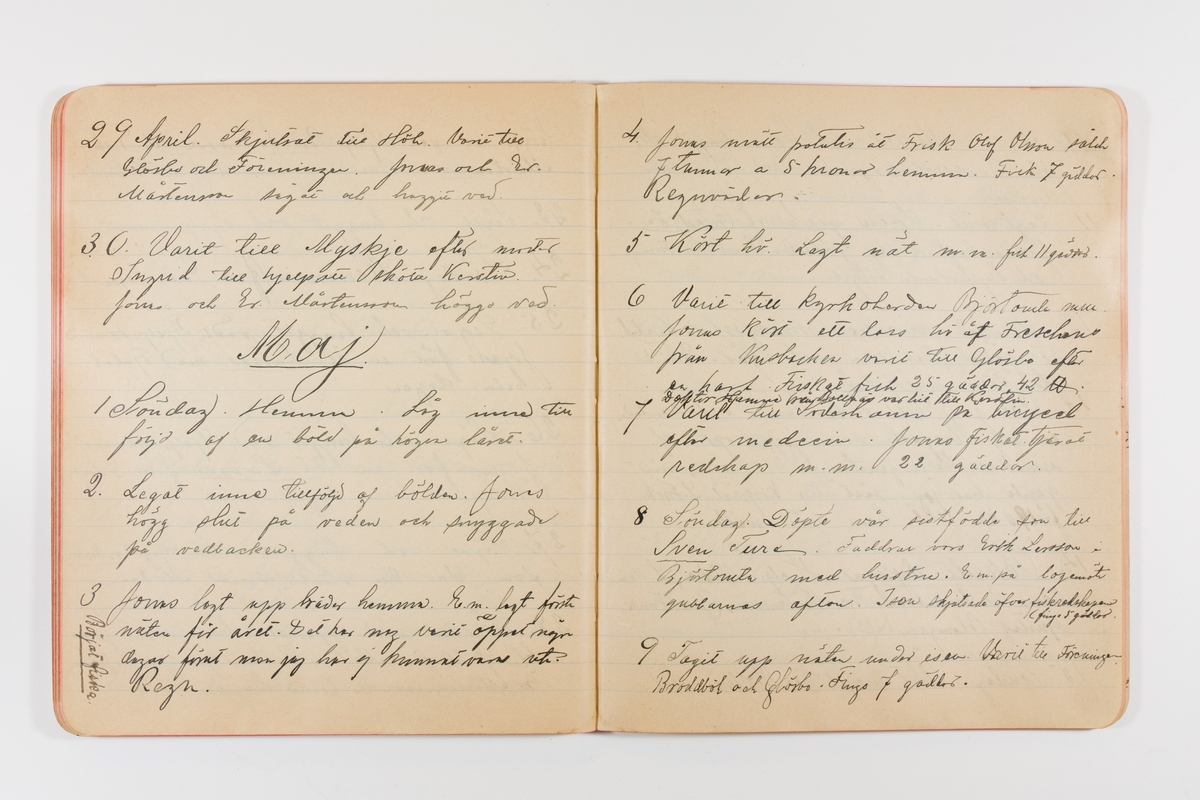 29 April. Skjutsat till Höh. Varit till
Glösbo och Föreningen. Jonas och Er.
Mårtensson sågat och huggit ved.
30. Varit till Myskje efter moder
Ingrid till hjelp att sköta Kerstin.
Jonas och Er. Mårtensson höggo ved.
Maj.
1 Söndag. Hemma. Låg inne till
följd af en böld på högra låret.
2. Legat inne tillföljd af bölden. Jonas
högg slut på veden och snyggade
på vedbacken.
3 Jonas lagt upp bräder hemma. E.m. lagt första
näten för året. Det har nog varit öppet några
dagar förut men jag har ej kunnat vara ute.
Regn.
Börjat fiska.
4. Jonas mätt potatis åt Frisk Olof Olsson sålde
7 tunnor a 5 kronor hemma. Fick 7 gäddor.
Regnväder.
5 Kört hö. Lagt nät m.m. fick 11 gäddor.
6 Varit till Kyrkoherden Björtomta m.m.
Jonas Kört ett lass hö af
från varit till Glösbo efter
en Fiskat fick 25 gäddor, 42 ℔.
Doktor var till Kerstin.
7 Varit till på bicycel
efter medecin. Jonas fiskat tjärat
redskap m.m. 22 gäddor.
8 Söndag. Döpte vår sistfödde son till
Sven Ture. Faddrar voro Erik Larsson i
Björtomta med hustru. E.m. på logemöte
gubbarnas afton. Ison skjutsade öfver fiskredskapen
fings 5 gäddor.
9 Tagit upp näten under isen. Varit till Föreningen
Broddböl och Glösbo. Fings 7 gäddor.